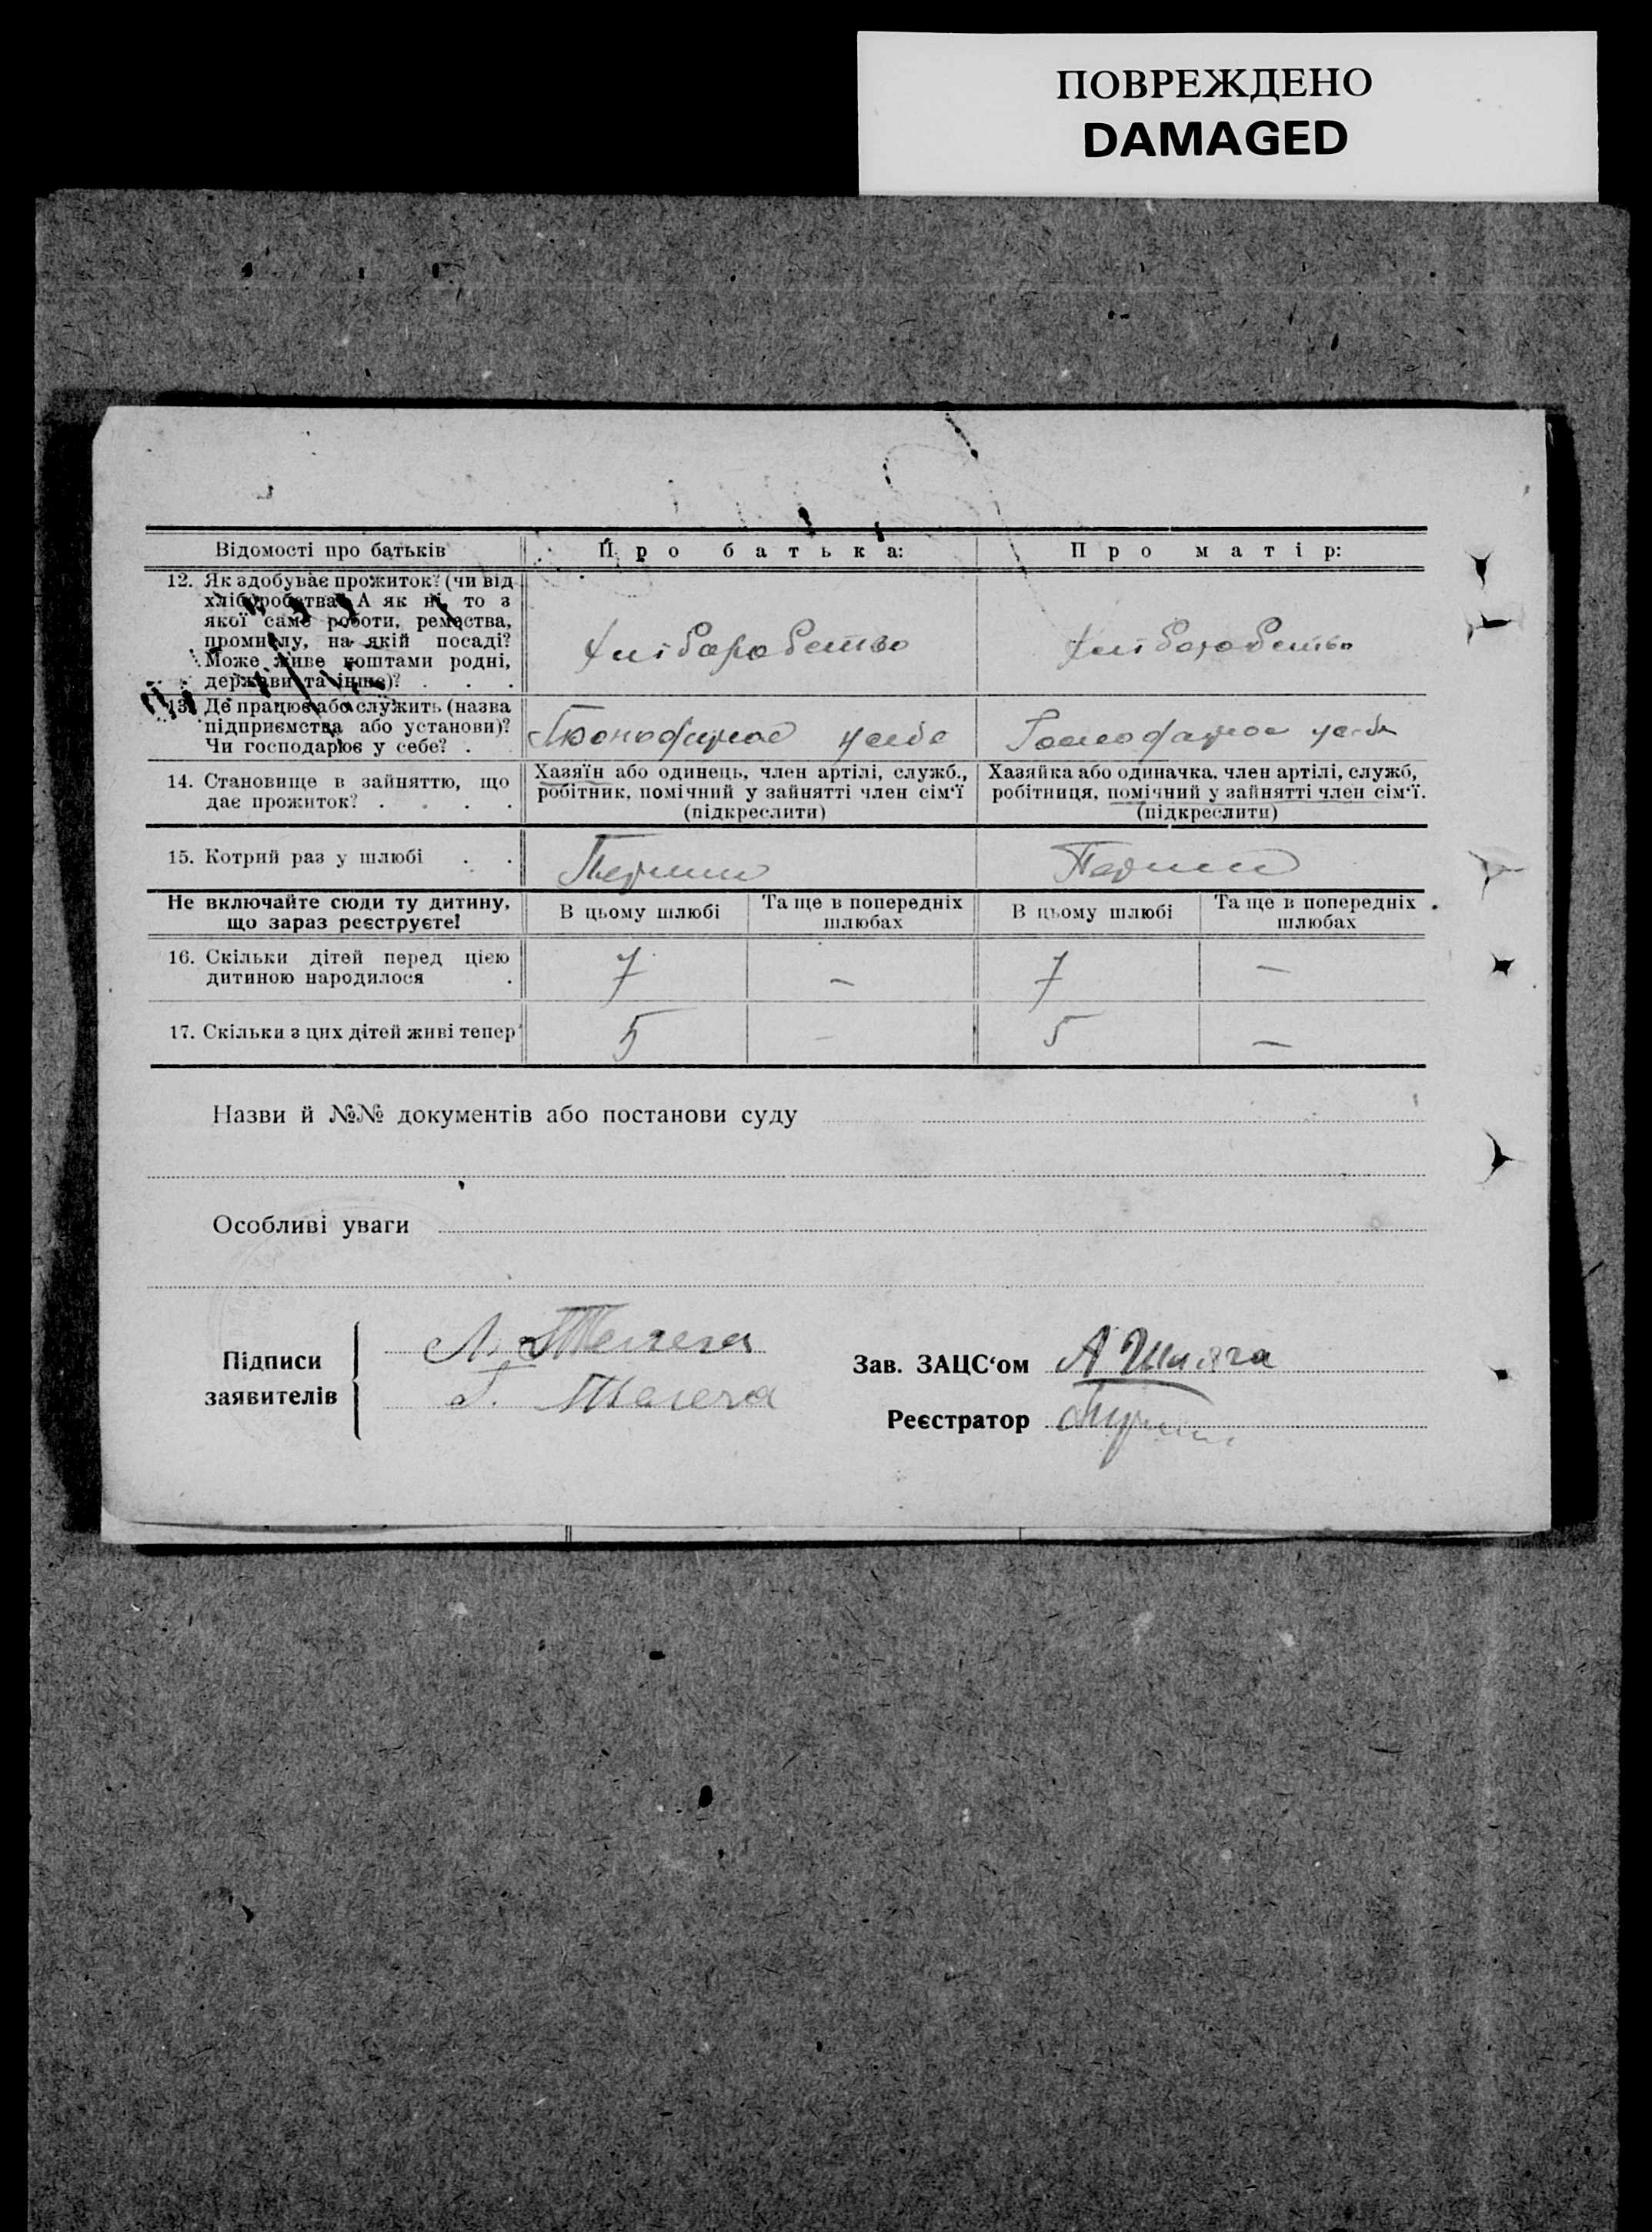 ПОВРЕЖДЕНО
DAMAGED
Відомості про батьків
Про батька:
Про матір:
12. Як здобуває прожиток? (чи від
хліборобства? А як ні, то з
якої саме роботи, ремества,
промислу, на якій посаді?
Може живе коштами родні,
держави та інше)? . . .
Хліборобство
Хліборобство
13. Де працює або служить (назва
підприємства або установи)?
Чи господарює у себе? .
Господарює у себе
14. Становище в зайняттю, що
дає прожиток? . . . .
Хазяїн або одинець, член артілі, служб.,
робітник, помічний у зайнятті член сім'ї
(підкреслити)
Хазяйка або одиначка, член артілі, служб,
робітниця, помічний у зайнятті член сім'ї.
(підкреслити)
15. Котрий раз у шлюбі . .
Перший
Не включайте сюди ту дитину,
що зараз реєструєте!
В цьому шлюбі
Та ще в попередніх
шлюбах
В цьому шлюбі
Та ще в попередніх
шлюбах
16. Скільки дітей перед цією
дитиною народилося .
7
—
7
—
17. Скільки з цих дітей живі тепер
5
—
5
—
Назви й №№ документів або постанови суду
Особливі уваги
Підписи
заявителів
Зав. ЗАЦС'ом
Реєстратор